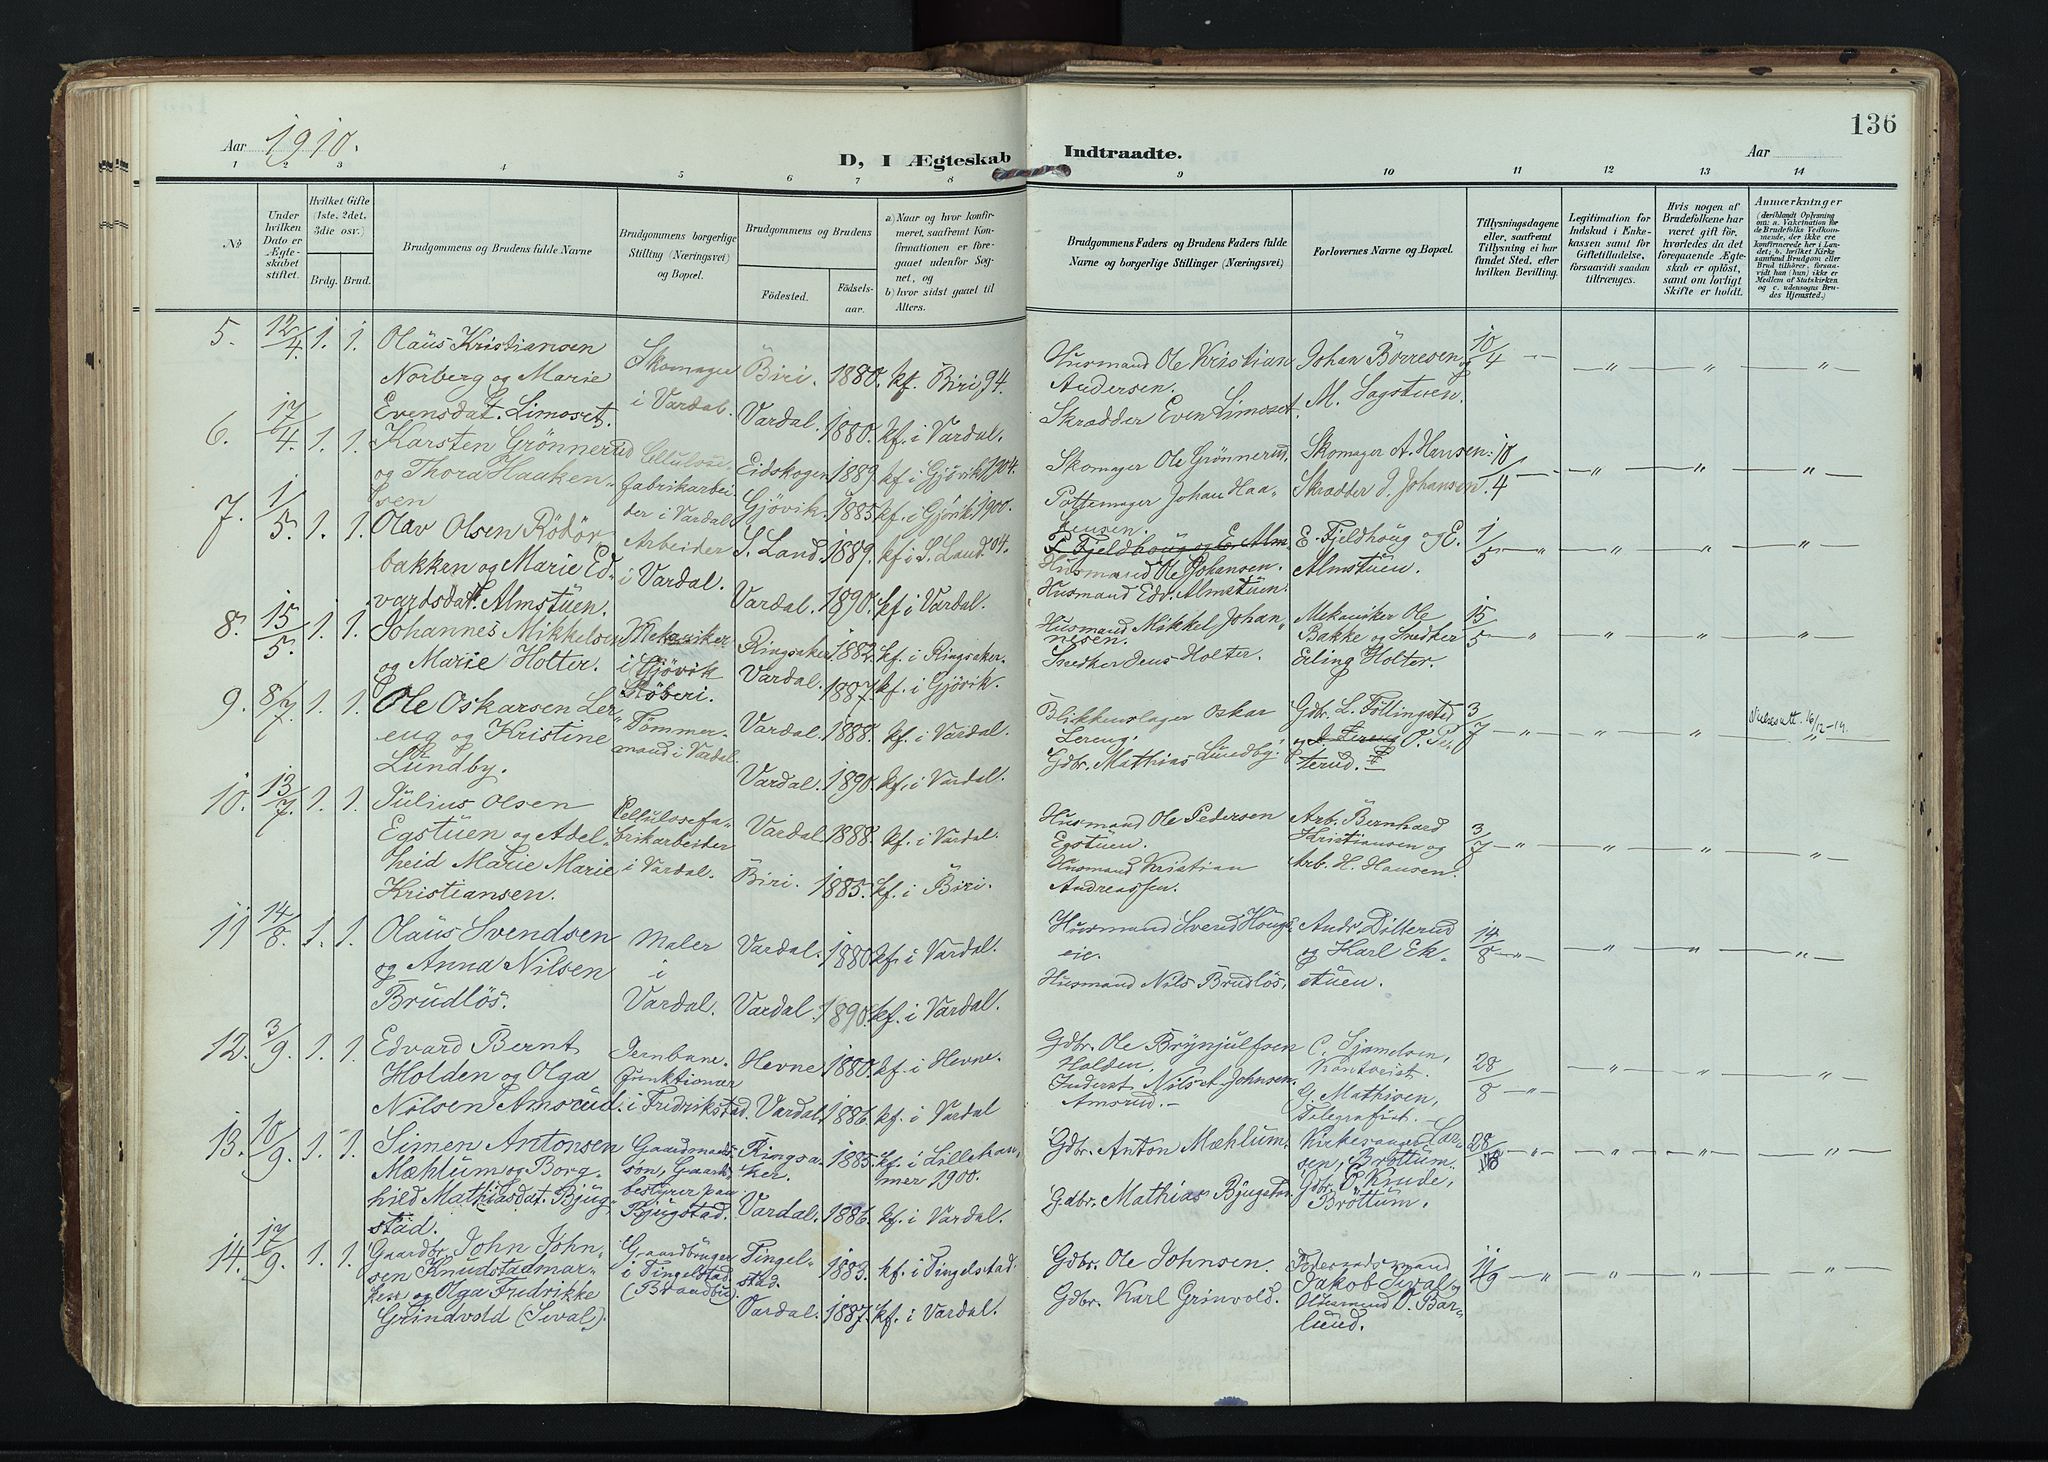 136
Aar 1910.
D, I Ægteskab Indtraadte.
Aar
1 2 3 4 5 6 7 8 9 10 11 12 13 14
No
Under hvilken Dato er Ægteskabet stiftet.
Hvilket Gifte (1ste, 2det, 3die osv.)
Brdg. Brud.
Brudgommens og Brudens fulde Navne
Brudgommens borgerlige Stilling (Næringsvei) og Bopæl.
Brudgommens og Brudens
Födested.
Födsels-aar.
a) Naar og hvor konfirmeret, saafremt Konfirmationen er foregaaet udenfor Sognet, og
b) hvor sidst gaaet til Alters.
Brudgommens Faders og Brudens Faders fulde Navne og borgerlige Stillinger (Næringsvei)
Forlovernes Navne og Bopæl.
Tillysningsdagene eller, saafremt Tillysning ei har fundet Sted, efter hvilken Bevilling.
Legitimation for Indskud i Enkekassen samt for Giftetilladelse, forsaavidt saadan tiltrænges.
Hvis nogen af Brudefolkene har været gift för, hvorledes da det foregaaende Ægteskab er oplöst, samt om lovligt Skifte er holdt.
Anmærkninger
5. 12/4. 1. 1. Olaus Kristiansen
Norberg og Marie
Evensdat. Limoset.
Skomager
i Vardal.
Biri. 1880. kf. Biri 94.
Vardal. 1880. kf. i Vardal.
Husmand Ole Kristian
Andersen.
Skrædder Even Limoset.
Johan Börresen og
M. Sagstuen.
10/4 — „ — „ — „ — „
6. 17/4. 1. 1. Karsten Grönnerud
og Thora Haaken-
sen
Cellulose-
fabrikarbei
der i Vardal
Eidskogen 1889. kf i Gjövik 1904.
Gjövik. 1885. kf. i Gjövik 1900.
Skomager Ole Grönnerud.
Pottemager Johan Haa-
kensen.
Skomager A. Hansen.
Skrædder J. Johansen.
10/4
7. 1/5. 1. 1. Olav Olsen Rödör
bakken og Marie Ed-
vardsdat. Almstuen.
Arbeider
i Vardal.
S. Land. 1889. kf i S. Land. 04.
Vardal. 1890. kf i Vardal.
E Fjeldhoug og E. Alm
Husmand Ole Johansen.
Husmand Edv. Almstuen.
E. Fjeldhoug og E.
Almstuen.
1/5
8. 15/5. 1. 1. Johannes Mikkelsen
og Marie Holter.
Mekaniker
i Gjövik
Stöberi.
Ringsaker 1882. kf. i Ringsaker.
Vardal. 1887. kf. i Gjövik.
Husmand Mikkel Johan-
nesen.
Snedker Jens Holter.
Mekaniker Ole
Bakke og Snedker
Erling Holter.
15/5
9. 8/7. 1. 1. Ole Oskarsen Ler-
eng og Kristine
Lundby.
Tömmer-
mand i Vardal.
Vardal. 1888. kf. i Vardal.
Vardal. 1890. kf. i Vardal.
Blikkenslager Oskar
Lereng.
Gdbr. Mathias Lundby.
Gdbr. L. Föllingstad
og O. Pe-
terud.
3/7
16/12-14.
10. 13/7. 1. 1. Julius Olsen
Egstuen og Adel-
heid Marie Marie
Kristiansen.
Cellulosefa-
brikarbeider
i Vardal.
Vardal. 1888. kf. i Vardal
Biri. 1885. kf. i Biri.
Husmand Ole Pedersen
Egstuen.
Husmand Kristian
Andreassen.
Arb. Bernhard
Kristiansen og
Arb. H. Hansen.
3/7
11 14/8. 1. 1. Olaus Svendsen
og Anna Nilsen
Brudlös.
Maler
i
Vardal.
Vardal. 1880. kf. i Vardal.
Vardal. 1890. kf. i Vardal.
Husmand Svend Hougs-
eie.
Husmand Nils Brudlös.
Andr. Dötterud
og Karl Ek-
stuen.
14/8
12. 3/9. 1. 1. Edvard Bernt
Holden og Olga
Nilsen Amsrud.
Jernbane-
funktionær
i Fredrikstad.
Hevne 1880. kf. i Hevne.
Vardal. 1886. kf. i Vardal
Gdbr. Ole Brynjulfsen
Holden.
Inderst Nils A Johnsen.
Amsrud. —
C. Sjamelsen,
Kontorist.
G. Mathisen,
Telegrafist.
28/8
13. 10/9. 1. 1. Simen Antonsen
Mæhlum og Borg-
hild Mathiasdat. Bjug-
stad.
Gaardmands-
sön, Gaards-
bestyrer paa
Bjugstad.
Ringsa-
ker. 1885. kf. i Lilleham-
mer 1900.
Vardal. 1886. kf. i Vardal.
Gdbr. Anton Mæhlum.
Gdbr. Mathias Bjugstad.
Kirkesanger Lar-
sen, Bröttum.
Gdbr. O. Knude,
Bröttum.
28/8
14. 17/9. 1. 1. Gaardbr. John John-
sen Knudstadmar-
ken og Olga Fredrikke
Grindvold (Sival).
Gaardbruger
i Tingelstad
(Brandbu).
Tingel-
stad. 1883. kf. i Tingelstad.
Vardal. 1887. kf. i Vardal.
Gdbr. Ole Johnsen.
Gdbr. Karl Grinvold.
Föderaadsmand
Jakob Sival og
Oldermand O. Bar-
lund.
11/9